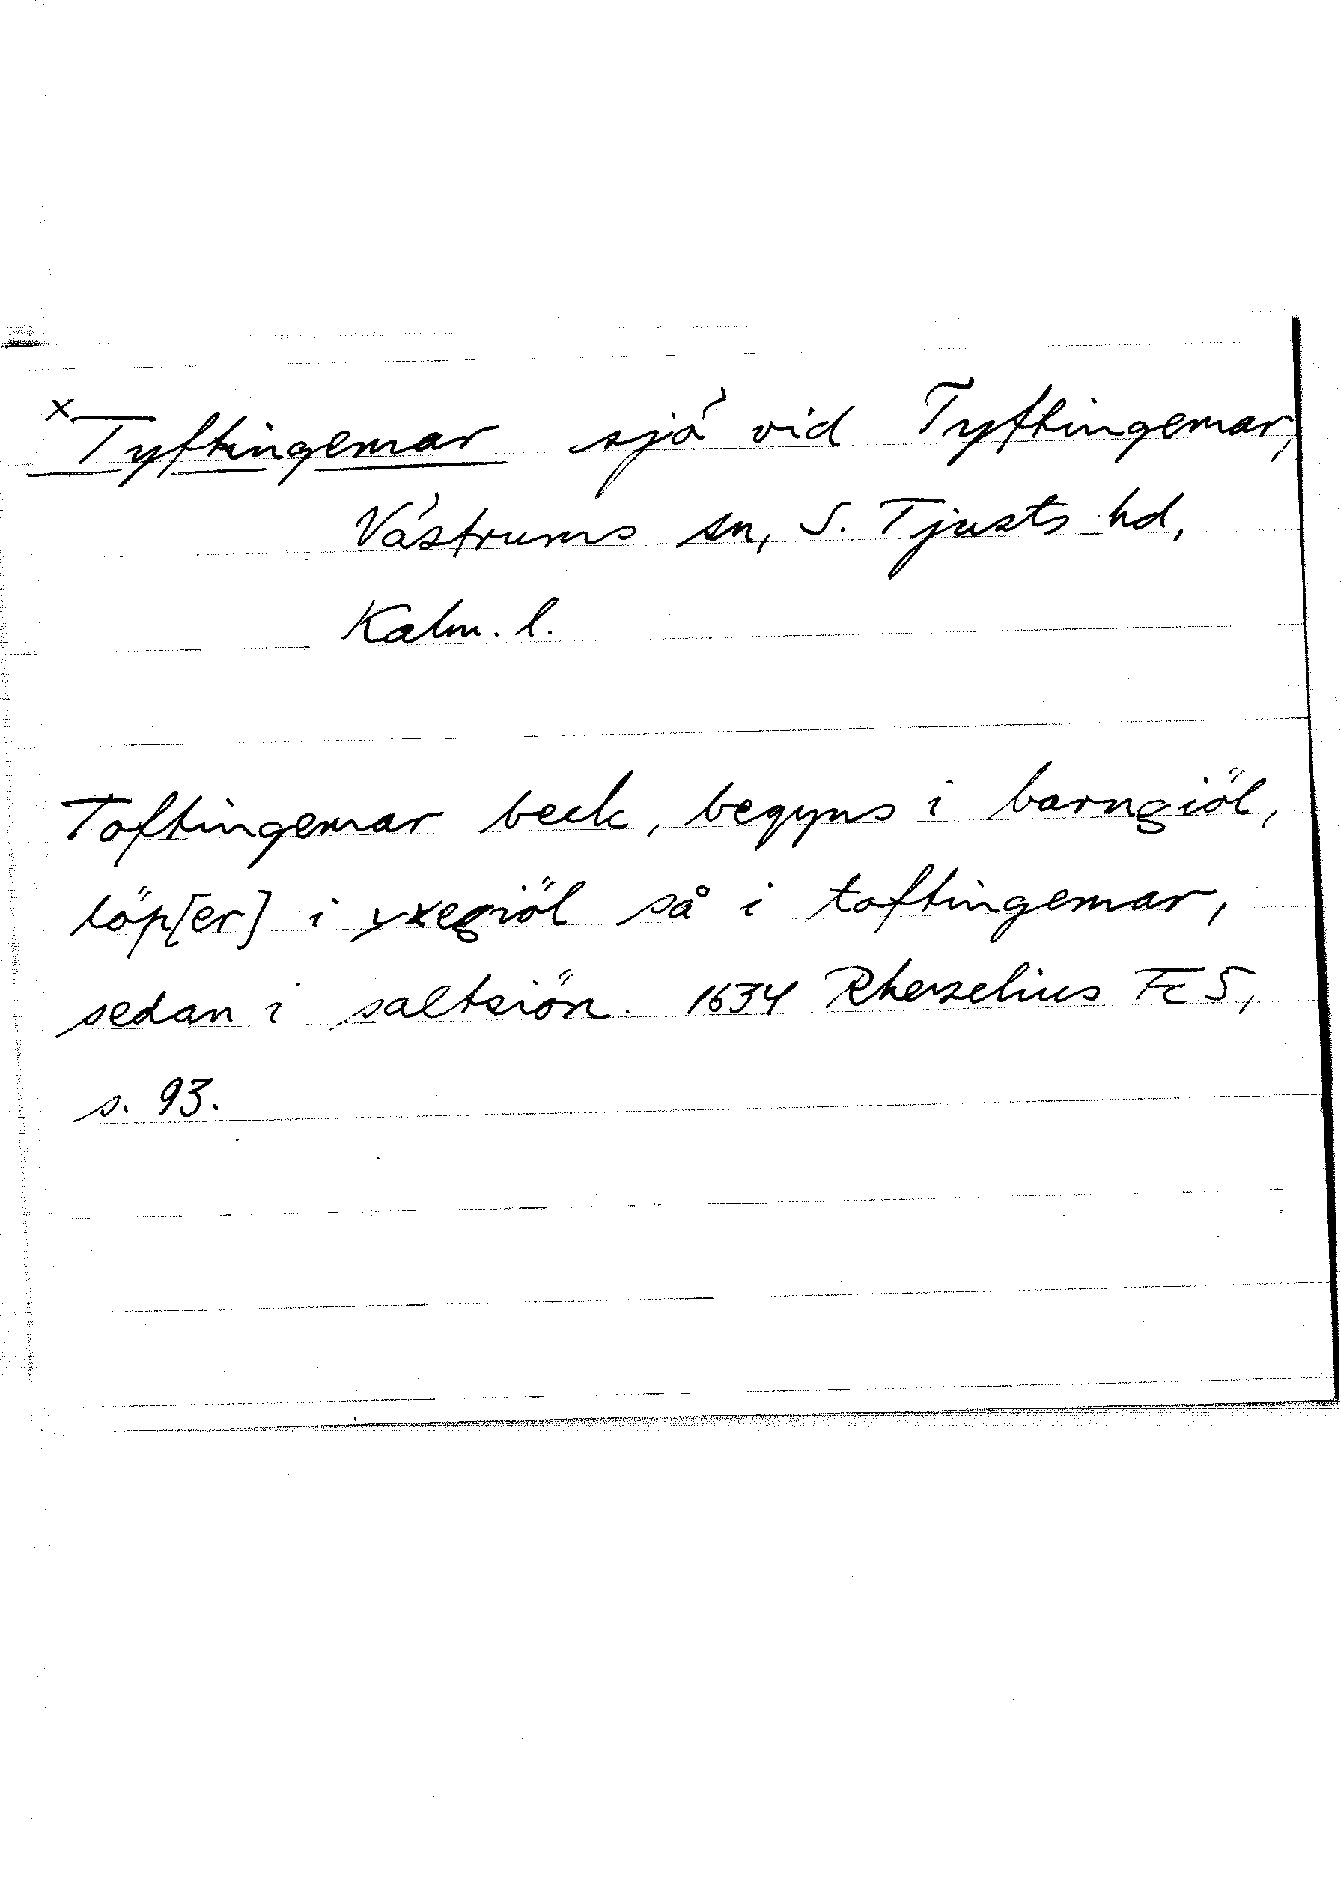 x Tyftingemar sjö vid Tyftingemar,
Västrums sn, S. Tjusts hd,
Kalm. l.
Toftingemar beck, begyns i barngiöl,
löp[er] i yxegiöl så i toftingemar,
sedan i saltsiön. 1634 Rhezelius Fc 5,
s. 93.